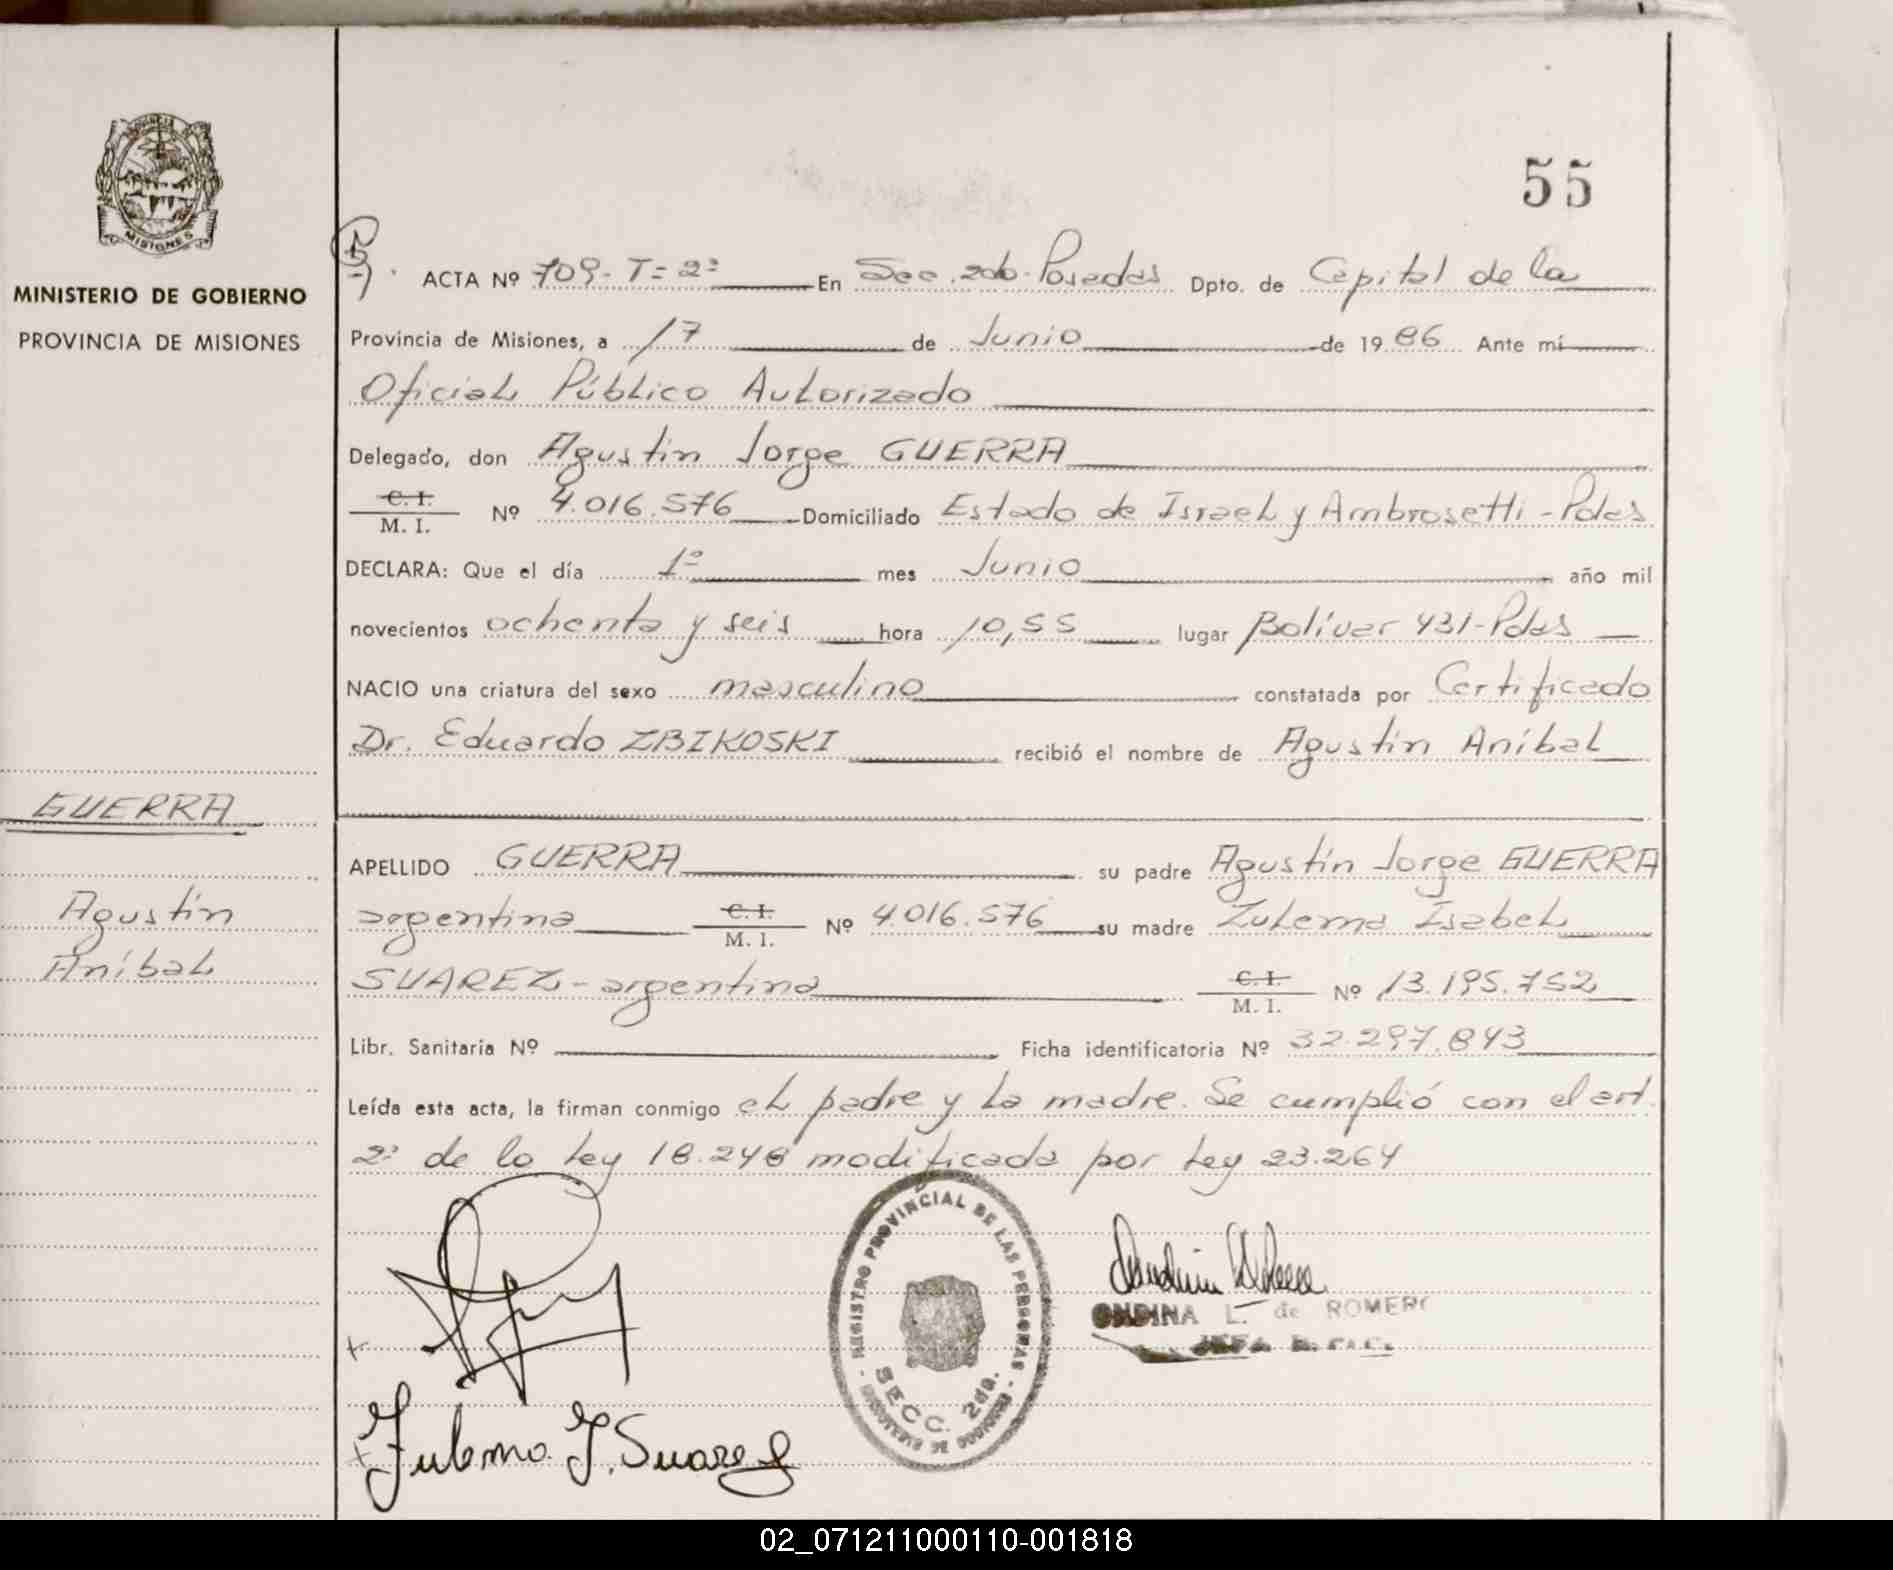 55
PROVINCIA DE
MISIONES
MINISTERIO DE GOBIERNO
PROVINCIA DE MISIONES
ACTA Nº 709 - T = 2º En Sec. 2da. Posadas Dpto. de Capital de la
Provincia de Misiones, a 17 de Junio de 1986 Ante mí
Oficial Público Autorizado
Delegado, don Agustin Jorge GUERRA
C. I.
M. I. Nº 4.016.576 Domiciliado Estado de Israel y Ambrosetti - Pdas
DECLARA: Que el día 1º mes Junio año mil
novecientos ochenta y seis hora 10,55 lugar Bolívar 431 - Pdas
NACIO una criatura del sexo masculino constatada por Certificado
Dr. Eduardo ZBIKOSKI recibió el nombre de Agustín Aníbal
GUERRA
Agustín
Aníbal
APELLIDO GUERRA su padre Agustín Jorge GUERRA
argentino C. I.
M. I. Nº 4.016.576 su madre Zulema Isabel
SUAREZ - argentina C. I.
M. I. Nº 13.195.752
Libr. Sanitaria Nº Ficha identificatoria Nº 32.297.843
Leída esta acta, la firman conmigo el padre y la madre. Se cumplió con el art.
2º de la Ley 18.248 modificada por Ley 23.264
REGISTRO PROVINCIAL DE LAS PERSONAS
SECC. 2da.
ONDINA L. de ROMERO
JEFA
Zulema I. Suarez
02_071211000110-001818